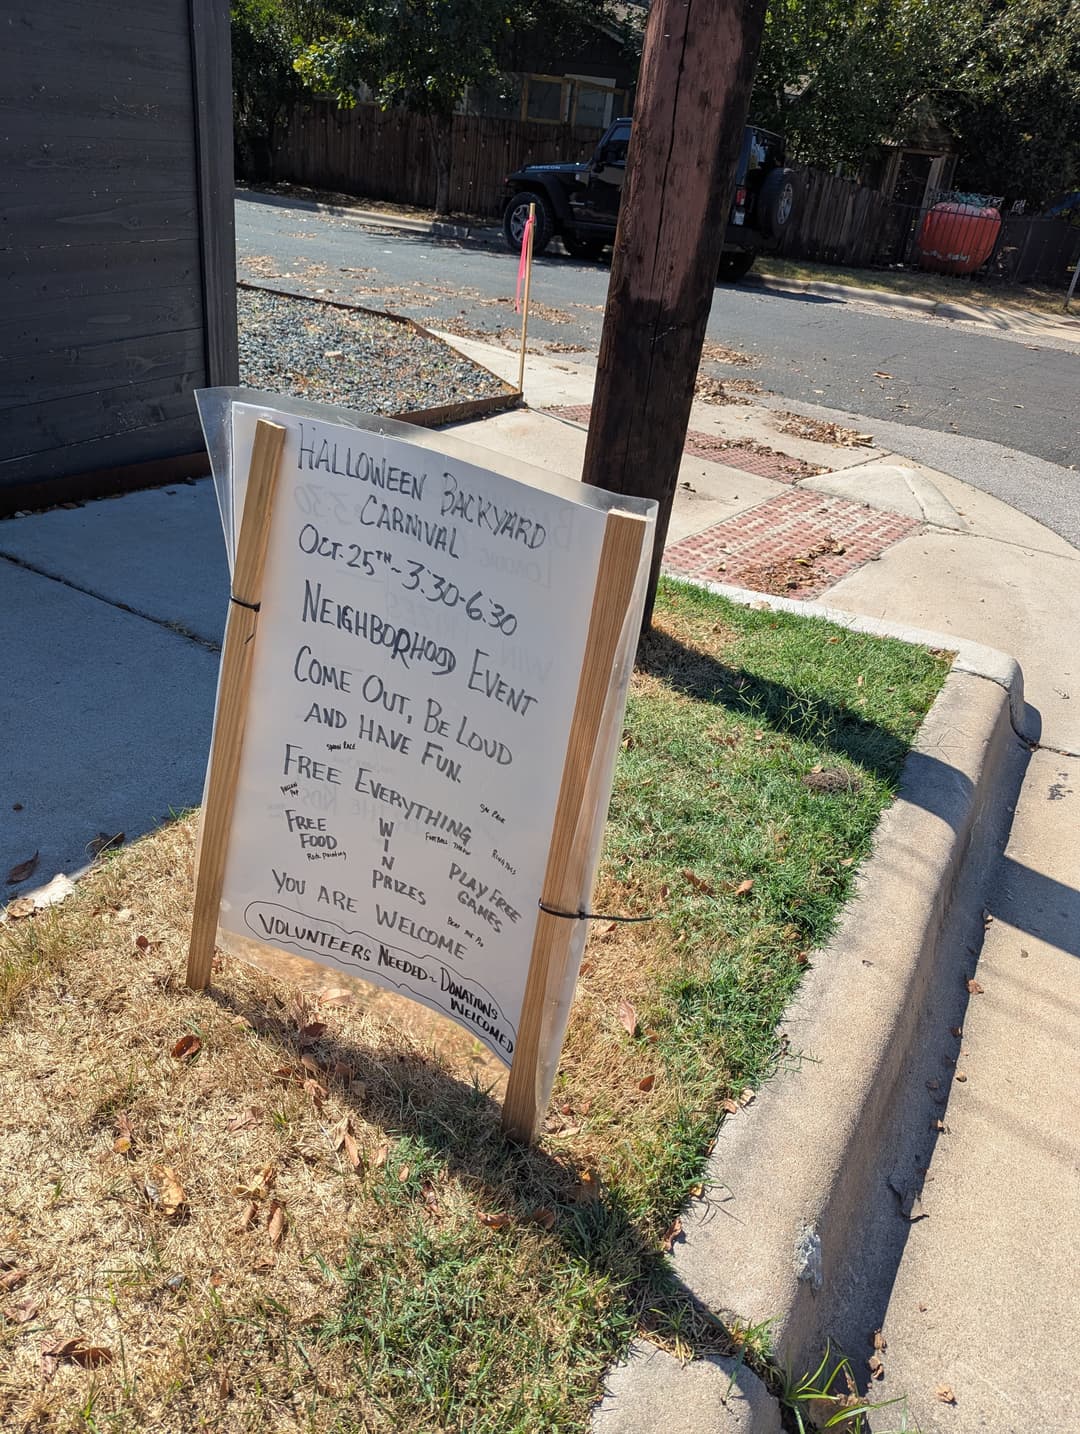 RUBICON
HALLOWEEN BACKYARD
CARNIVAL
OCT. 25TH ~ 3:30-6:30
NEIGHBORHOOD EVENT
COME OUT, BE LOUD
AND HAVE FUN.
SPOON RACE
FREE EVERYTHING
SACK RACE
FREE
FOOD
Rock painting
WIN
PRIZES
FOOTBALL THROW
RING TOSS
PLAY FREE
GAMES
YOU ARE WELCOME
VOLUNTEERS NEEDED ~ DONATIONS
WELCOMED